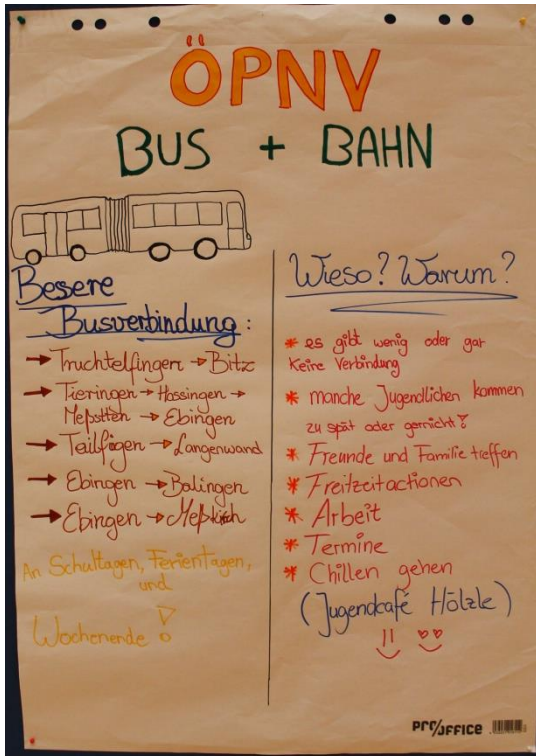 ÖPNV
BUS + BAHN
Bessere
Busverbindung:
→ Truchtelfingen → Bitz
→ Tieringen → Hossingen →
Meßstten → Ebingen
→ Tailfigen → Langenwand
→ Ebingen → Balingen
→ Ebingen → Meßkirch
An Schultagen, Ferientagen,
und
Wochenende !
Wieso? Warum?
* es gibt wenig oder gar
keine Verbindung
* manche Jugendlichen kommen
zu spät oder garnicht!
* Freunde und Familie treffen
* Freitzeitactionen
* Arbeit
* Termine
* Chillen gehen
(Jugendcafé Hölzle)
PRO/OFFICE